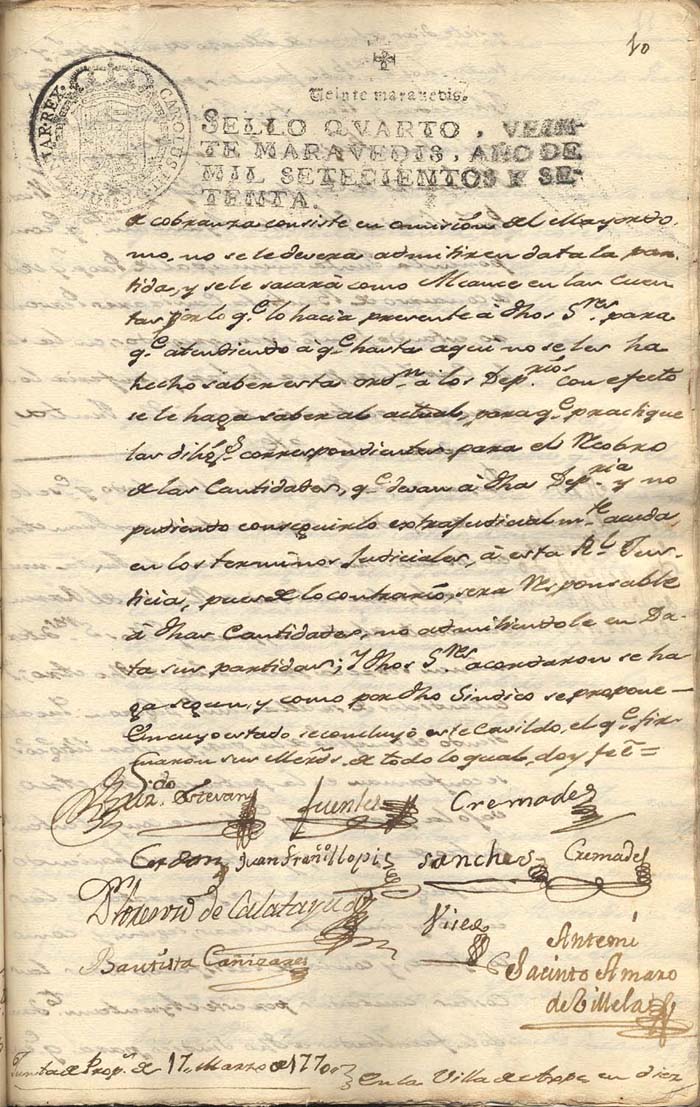 10
CAROLUS III HISPANIAR. REX
Veinte maravedis.
SELLO QVARTO, VEIN-
TE MARAVEDIS, AÑO DE
MIL SETECIENTOS Y SE-
TENTA.
de cobranza consiste en omisión del Mayordo-
mo, no se le devera admitir en data la par-
tida, y se le sacará como Alcance en las Cuen-
tas por lo q.e lo hacia presente à dhos S.res para
q.e atendiendo à q.e hasta aqui no se les ha
hecho saber esta ord.n à los Dep.rios con efecto
se le haga saber al actual, para q.e practique
las dilig.s correspondientes para el Recobro
de las Cantidades, q.e devan à dha Dep.ria y no
pudiendo conseguirlo extrajudicial m.te acuda
en los terminos Judiciales, à esta R.l Jus-
ticia, pues de lo contrario, sera Responsable
à dhas Cantidades, no admitiendole en Da-
ta sus partidas; Y dhos S.res acordaron se ha-
ga segun, y como por dho Sindico se propone =
En cuyo estado, se concluyo este Cavildo, el q.e fir-
maron sus Merds. de todo lo qual, doy feè =
Estevan Fuentes Cremades
Cerdan Juan Fran.co Llopis Sanches Cremades
D.r Lorenzo de Calatayud
Vives
Bautista Cañizares
Antemi
Jacinto Amaro
de Villela
Junta de Prop.s de 17. Marzo de 1770. En la Villa de Aspe en diez